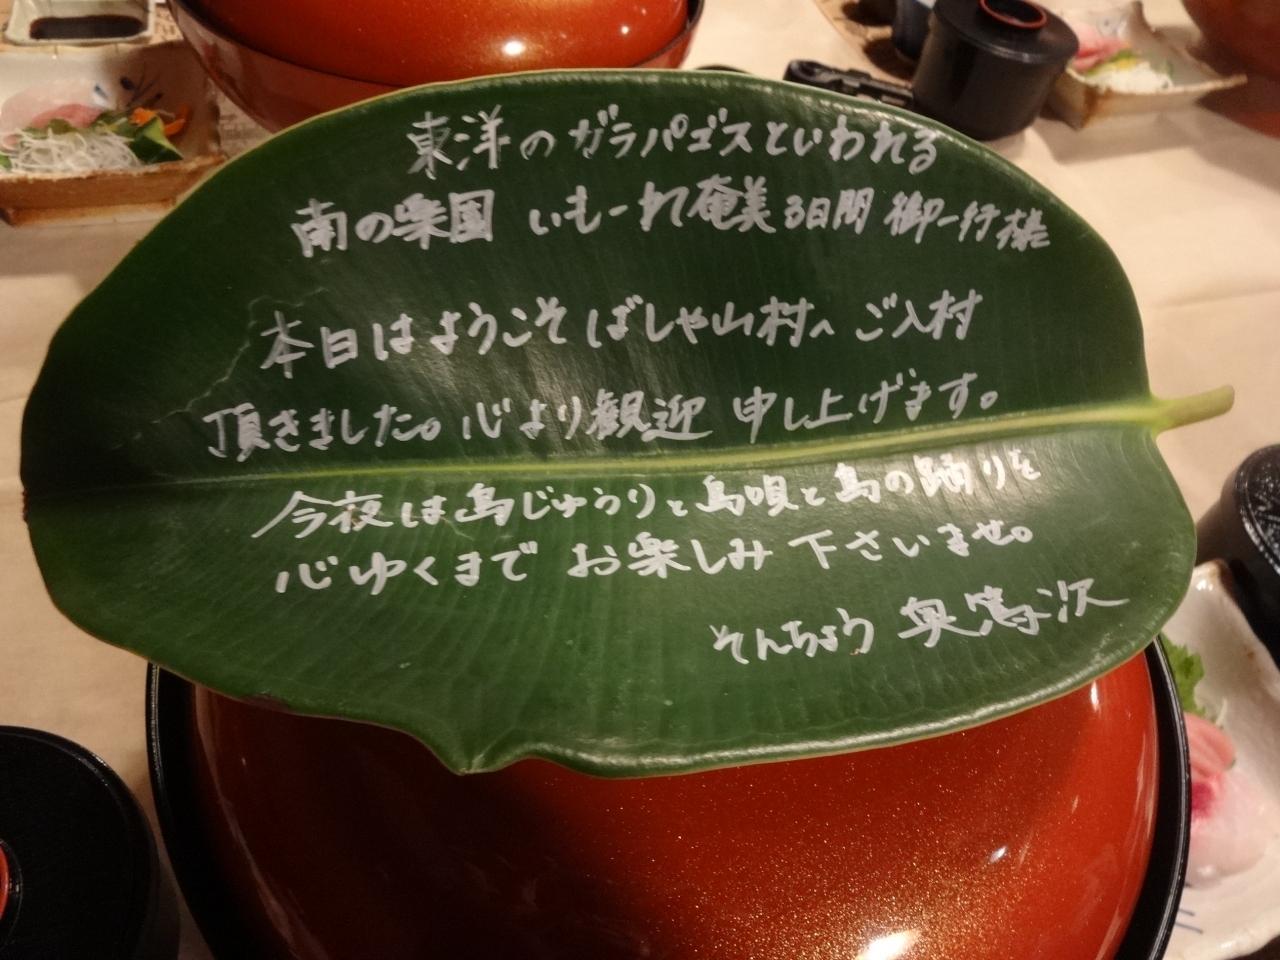 東洋のガラパゴスといわれる
南の楽園 いもーれ奄美3日間 御一行様
本日はようこそばしゃ山村へご入村
頂きました。心より観迎申し上げます。
今夜は島じゅうりと島唄と島の踊りを
心ゆくまでお楽しみ下さいませ。
そんちょう 奥篤次